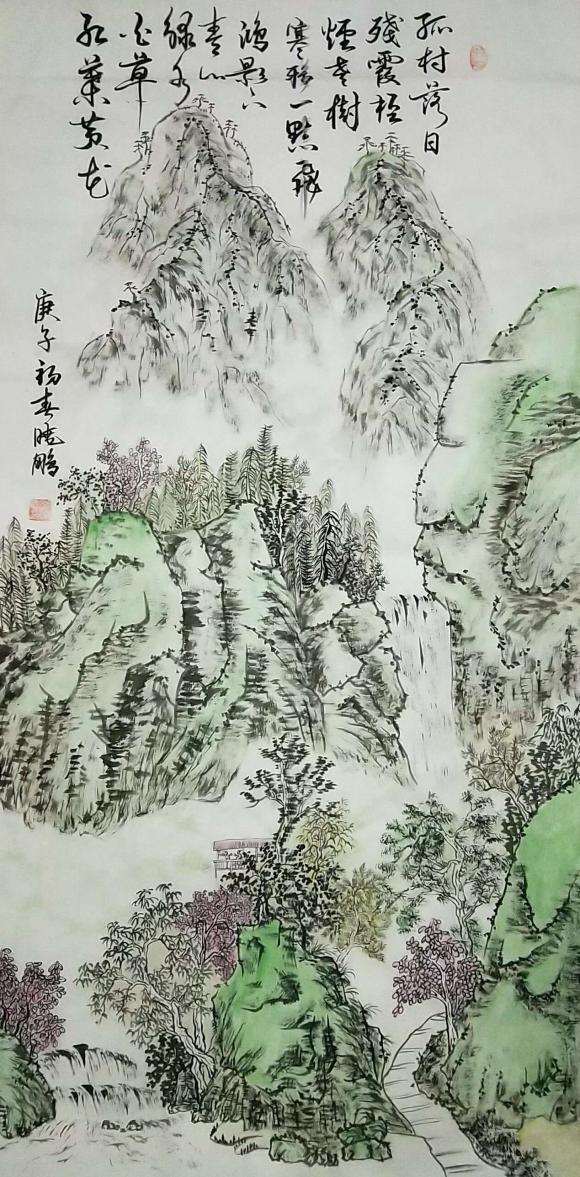 孤村落日
殘霞轻
煙老樹
寒鸦一點飛
鴻影下
青山
綠水
白草
红葉黄花
庚子初春曉鵬